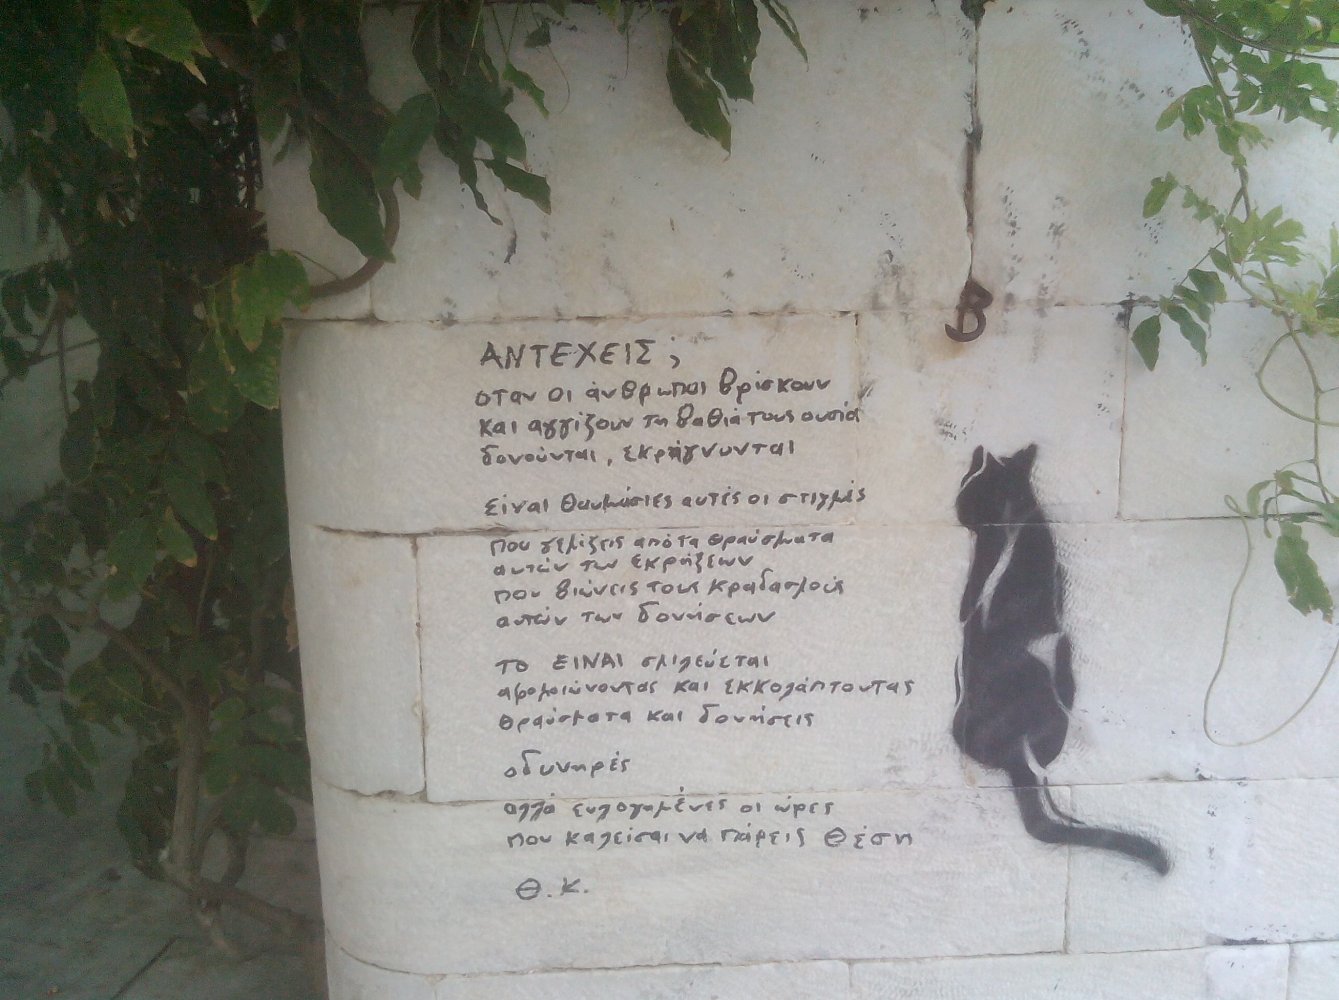 ΑΝΤΕΧΕΙΣ ;
οταν οι άνθρωποι βρίσκουν
και αγγίζουν τη βαθιά τους ουσία
δονούνται, εκρήγνυνται
είναι θαυμάσιες αυτές οι στιγμές
που γεμίζεις από τα θραύσματα
αυτών των εκρήξεων
που βιώνεις τους κραδασμούς
αυτών των δονήσεων
το ΕΙΝΑΙ σμιλεύεται
αφομοιώνοντας και εκκολάπτοντας
θραύσματα και δονήσεις
οδυνηρές
αλλά ευλογημένες οι ώρες
που καλείσαι νά πάρεις θέση
Θ.Κ.